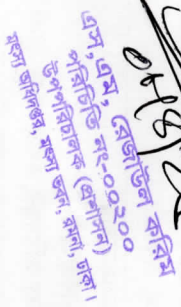 এস, এম, রেজাউল করিম
পরিচিতি নং-০০২০০
উপপরিচালক (প্রশাসন)
মৎস্য অধিদপ্তর, মৎস্য ভবন, রমনা, ঢাকা।